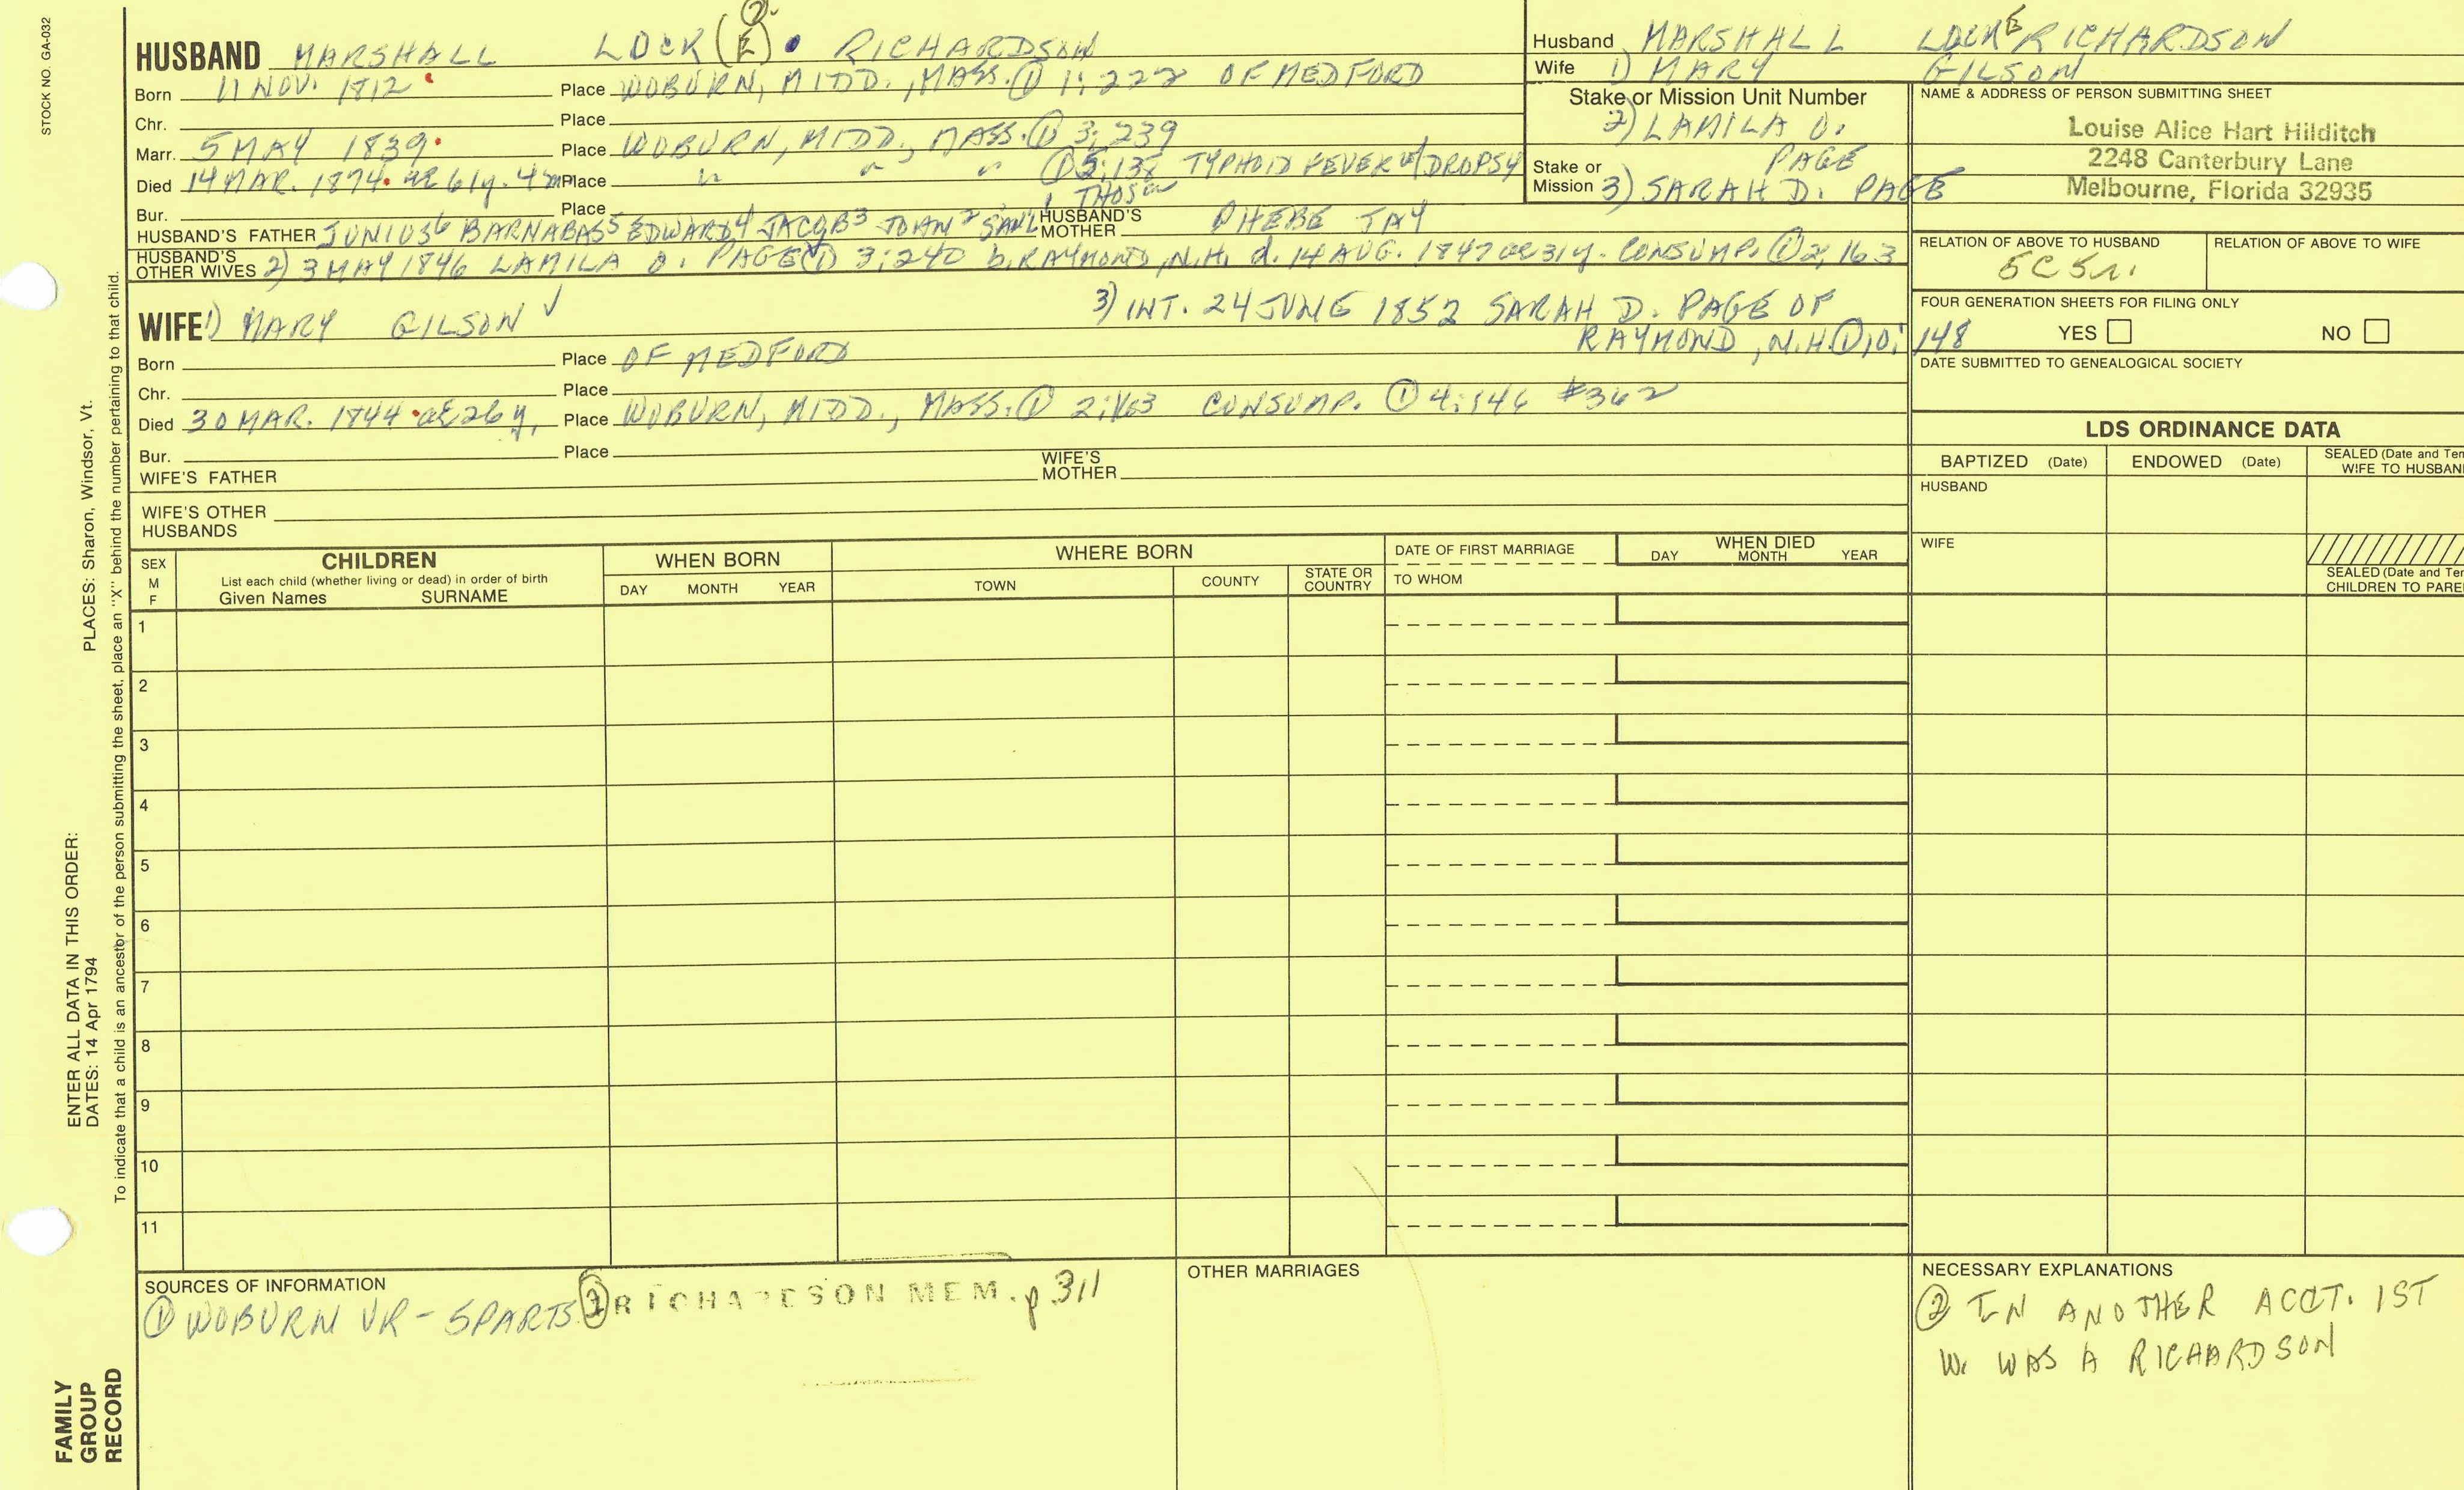 STOCK NO. GA-032
HUSBAND MARSHALL LOCK(E). RICHARDSON
②
Born 11 NOV. 1812 Place WOBURN, MIDD., MASS. ① 1; 222 OF MEDFORD
Chr. Place
Marr. 5 MAY 1839 Place WOBURN, MIDD., MASS. ① 3; 239
Died 14 MAR. 1874 ae 61y. 4m Place " " " ① 5; 138 TYPHOID FEVER w/ DROPSY
Bur. Place
HUSBAND'S FATHER JUNIUS6 BARNABAS5 EDWARD4 JACOB3 JOHN2 SAML1 THOS
HUSBAND'S MOTHER PHEBE TAY
HUSBAND'S OTHER WIVES 2) 3 MAY 1846 LAMILA O. PAGE ① 3; 240 b. RAYMOND, N.H. d. 14 AUG. 1847 ae 31y. CONSUMP. ① 2; 163
3) INT. 24 JUNE 1852 SARAH D. PAGE OF
RAYMOND, N.H. ① 10; 148
WIFE 1) MARY GILSON ✓
Born Place OF MEDFORD
Chr. Place
Died 30 MAR. 1844 ae 26 y, Place WOBURN, MIDD., MASS. ① 2; 163 CONSUMP. ① 4; 146 #362
Bur. Place
WIFE'S FATHER WIFE'S MOTHER
WIFE'S OTHER HUSBANDS
Husband MARSHALL LOCKE RICHARDSON
Wife 1) MARY GILSON
Stake or Mission Unit Number
2) LAMILA O. PAGE
Stake or Mission 3) SARAH D. PAGE
NAME & ADDRESS OF PERSON SUBMITTING SHEET
Louise Alice Hart Hilditch
2248 Canterbury Lane
Melbourne, Florida 32935
RELATION OF ABOVE TO HUSBAND RELATION OF ABOVE TO WIFE
5C 5r.
FOUR GENERATION SHEETS FOR FILING ONLY
YES NO
DATE SUBMITTED TO GENEALOGICAL SOCIETY
LDS ORDINANCE DATA
BAPTIZED (Date) ENDOWED (Date) SEALED (Date and Tem
WIFE TO HUSBAN
HUSBAND
WIFE
SEALED (Date and Tem
CHILDREN TO PARE
SEX
M
F
CHILDREN
List each child (whether living or dead) in order of birth
Given Names SURNAME
WHEN BORN
DAY MONTH YEAR
WHERE BORN
TOWN COUNTY STATE OR COUNTRY
DATE OF FIRST MARRIAGE
TO WHOM
WHEN DIED
DAY MONTH YEAR
1
2
3
4
5
6
7
8
9
10
11
SOURCES OF INFORMATION
① WOBURN VR - 5 PARTS ② RICHARDSON MEM. p 311
OTHER MARRIAGES
NECESSARY EXPLANATIONS
② IN ANOTHER ACCT. 1ST
W. WAS A RICHARDSON
FAMILY
GROUP
RECORD
ENTER ALL DATA IN THIS ORDER:
DATES: 14 Apr 1794
PLACES: Sharon, Windsor, Vt.
To indicate that a child is an ancestor of the person submitting the sheet, place an "X" behind the number pertaining to that child.